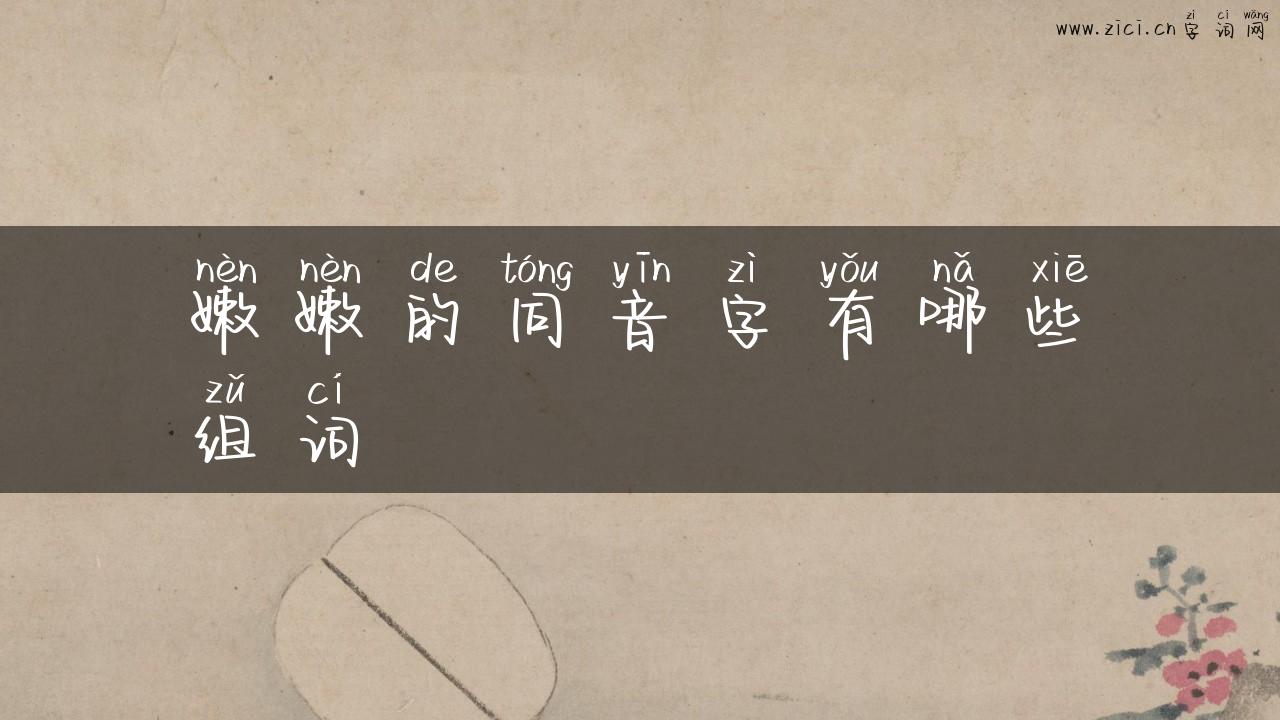 zì cí wǎng
www.zici.cn 字词网
nèn nèn de tóng yīn zì yǒu nǎ xiē
嫩嫩的同音字有哪些
zǔ cí
组词